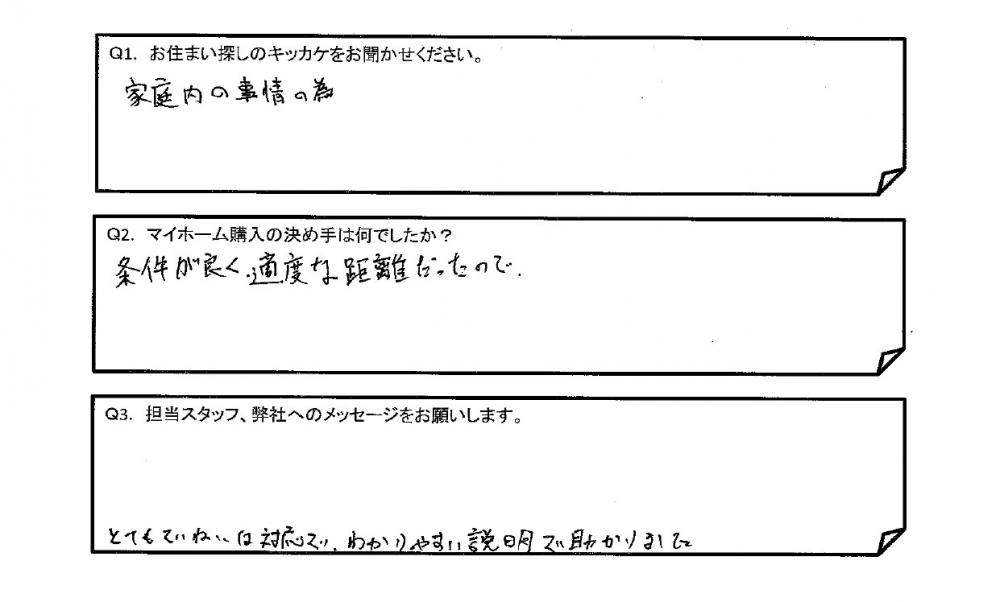 Q1. お住まい探しのキッカケをお聞かせください。
家庭内の事情の為
Q2. マイホーム購入の決め手は何でしたか？
条件が良く、適度な距離だったので。
Q3. 担当スタッフ、弊社へのメッセージをお願いします。
とてもていねいな対応で、わかりやすい説明で助かりました